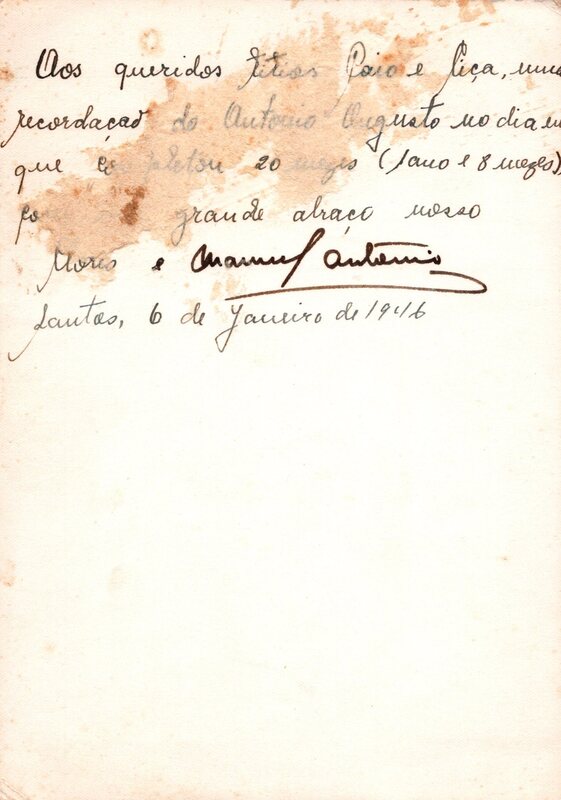 Aos queridos titios Caio e Ciça, uma
recordação do Antonio Augusto no dia em
que completou 20 mezes (1 ano e 8 mezes)
grande abraço nosso
e Manuel Antonio
Santos, 6 de Janeiro de 1946